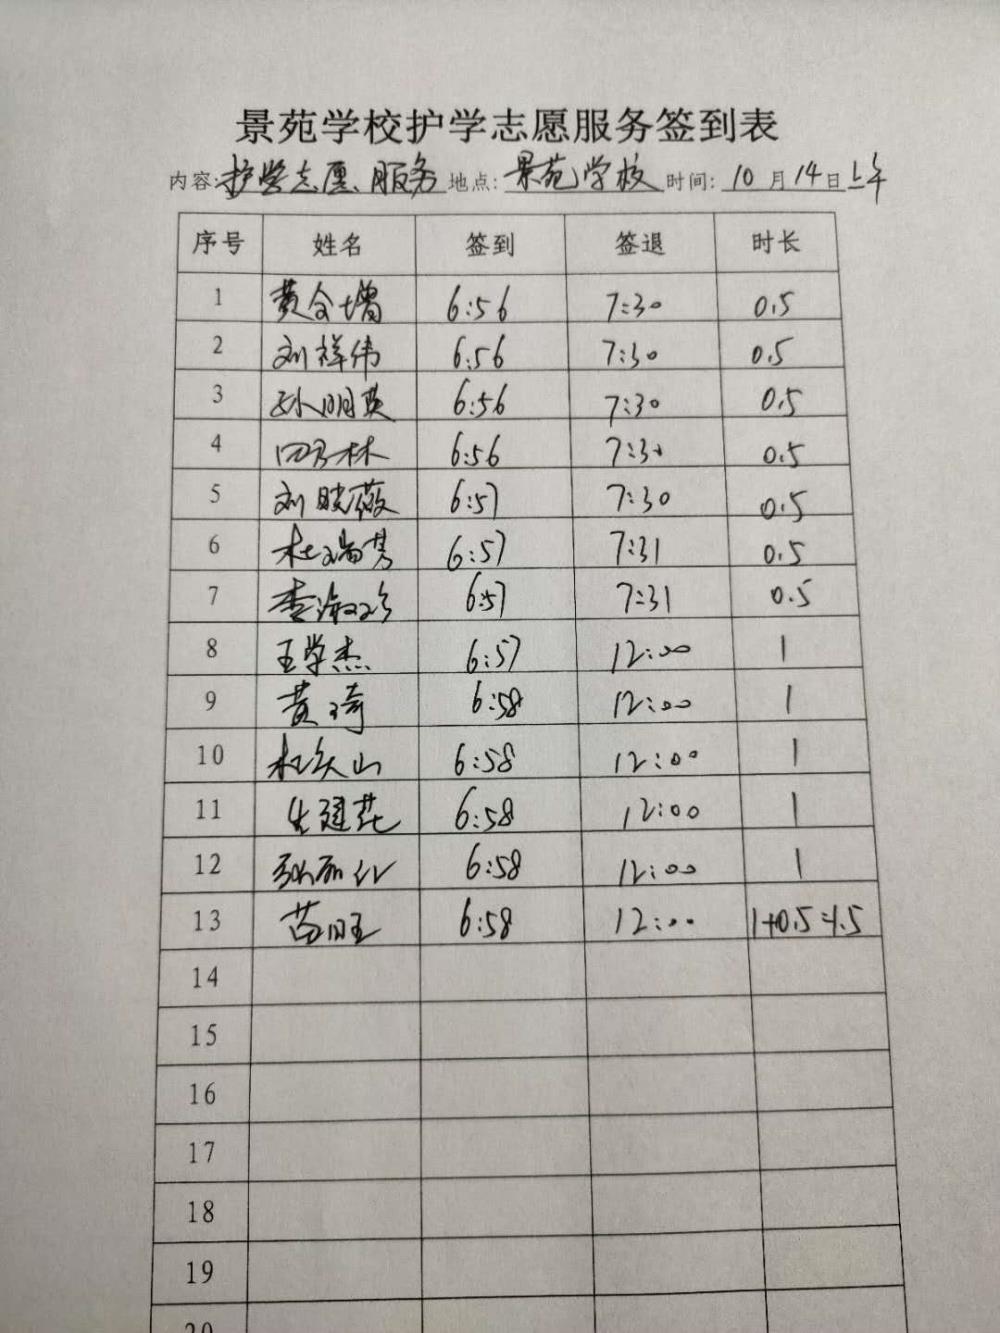 景苑学校护学志愿服务签到表
内容:护学志愿服务 地点:景苑学校 时间:10月14日上午
序号 姓名 签到 签退 时长
1 黄会增 6:56 7:30 0.5
2 刘祥伟 6:56 7:30 0.5
3 孙明英 6:56 7:30 0.5
4 6:56 7:30 0.5
5 刘晓薇 6:57 7:30 0.5
6 杜瑞芳 6:57 7:31 0.5
7 李淑珍 6:57 7:31 0.5
8 王学杰 6:57 12:00 1
9 黄琦 6:58 12:00 1
10 6:58 12:00 1
11 生建花 6:58 12:00 1
12 6:58 12:00 1
13 苗旺 6:58 12:00 1+0.5=1.5
14
15
16
17
18
19
20